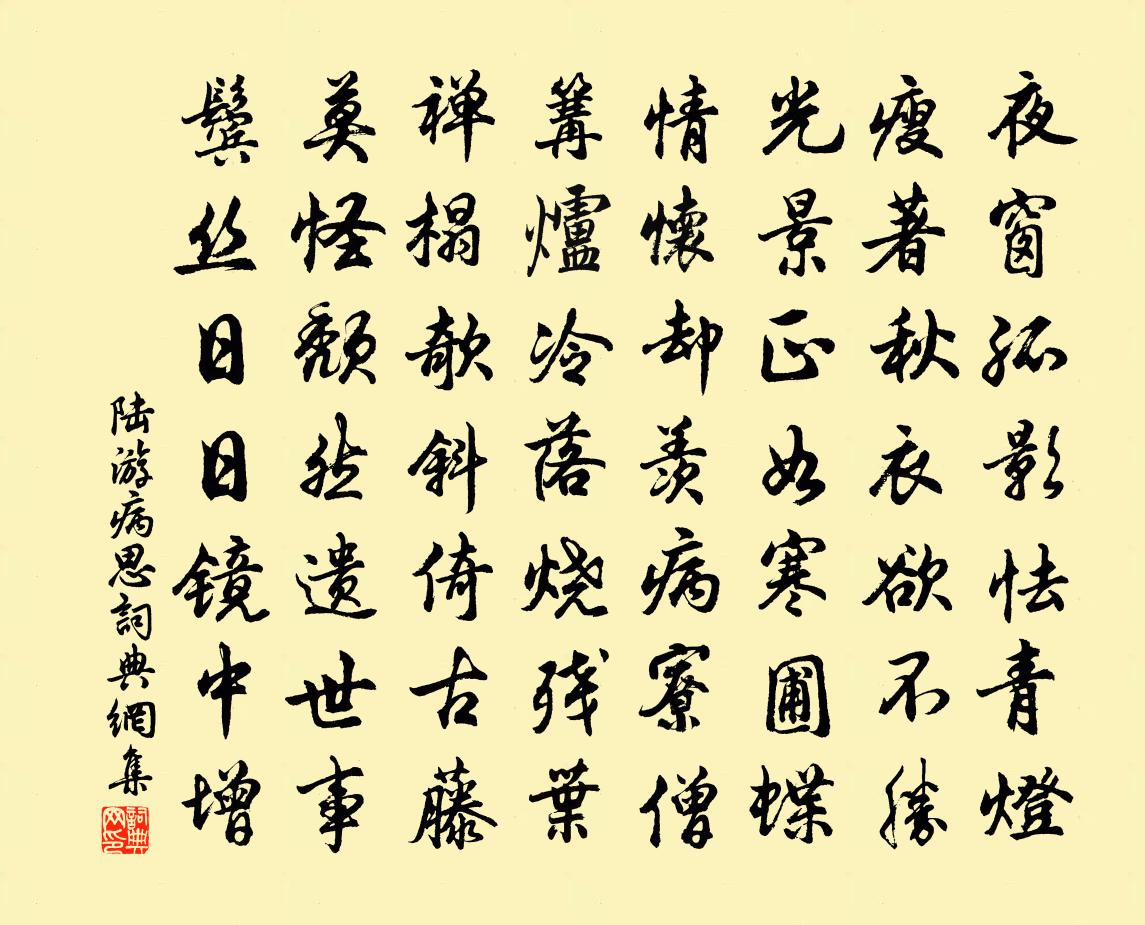 夜窗孤影怯青燈
瘦著秋衣欲不勝
光景正如寒圃蝶
情懷却羨病寮僧
篝爐冷落烧残葉
禅榻欹斜倚古藤
莫怪颓然遗世事
鬓丝日日镜中增
陆游病思詞典網集
詞典网印